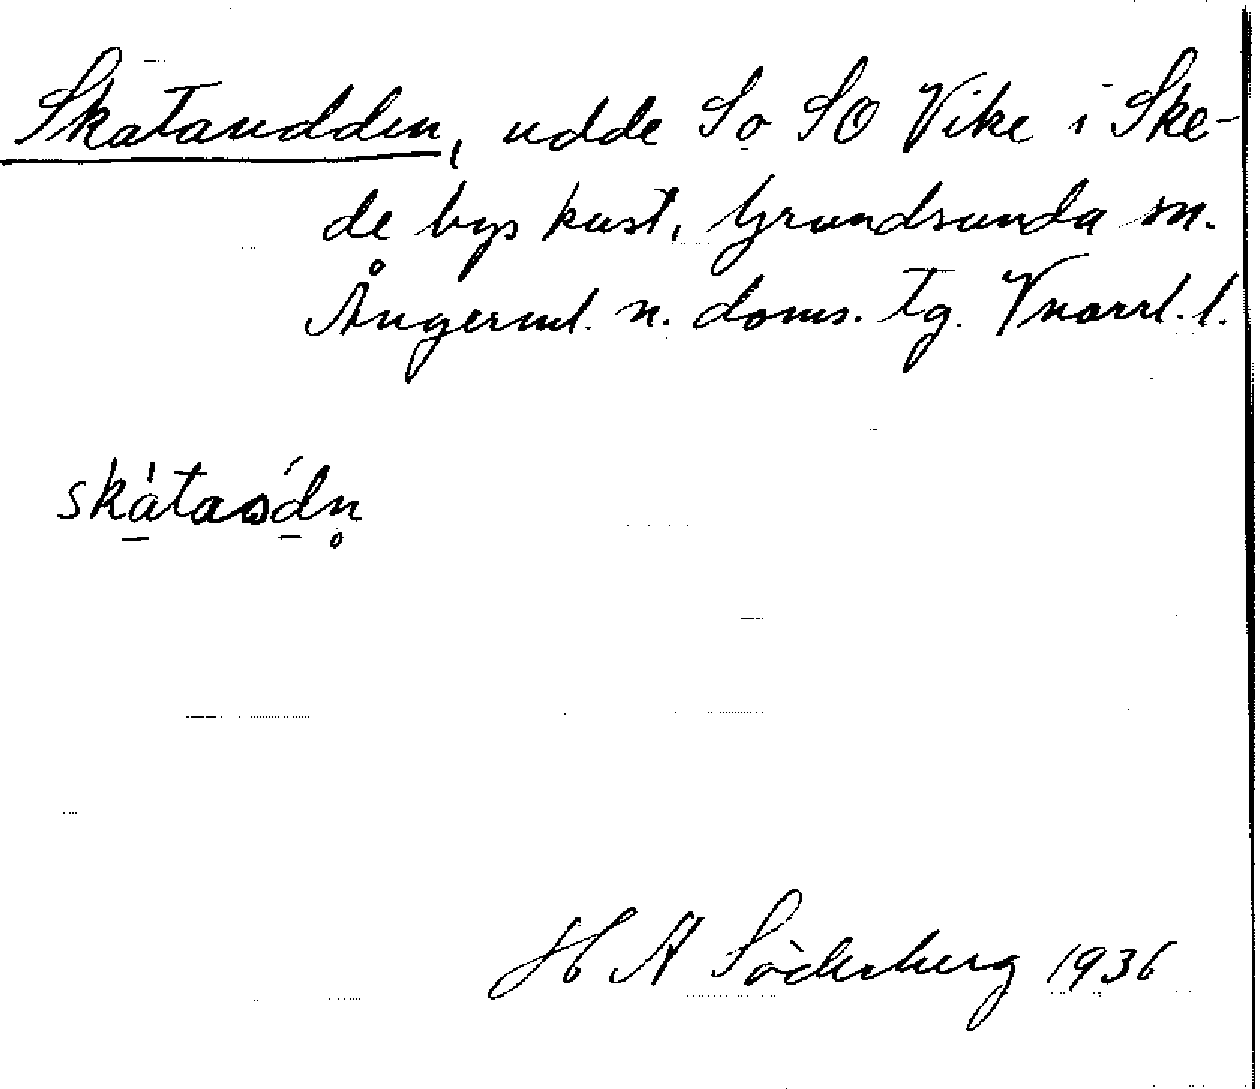 Skataudden, udde S o SO Vike i Ske-
de bys kust, Grundsunda sn.
Ångerml. n. doms. tg. Vnorrl. l.
skátaódn̥
H A Söderberg 1936